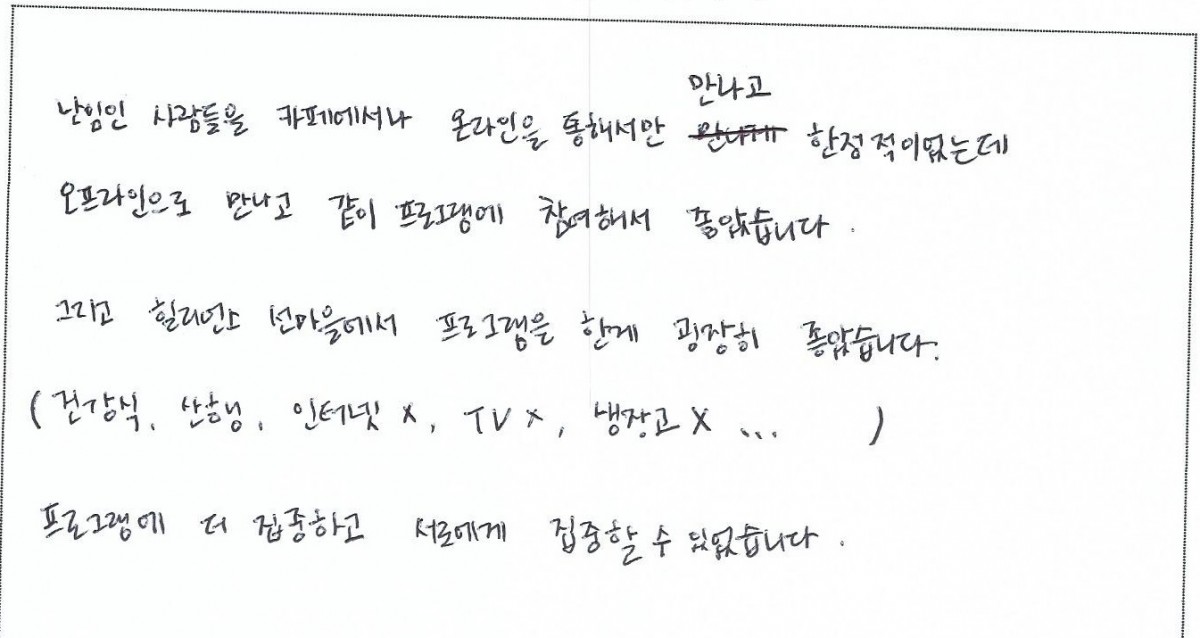 만나고
난임인 사람들을 카페에서나 온라인을 통해서만 만나게 한정적이었는데
오프라인으로 만나고 같이 프로그램에 참여해서 좋았습니다.
그리고 힐리언스 선마을에서 프로그램을 한게 굉장히 좋았습니다.
(건강식, 산행, 인터넷 X, TV X, 냉장고 X ... )
프로그램에 더 집중하고 서로에게 집중할 수 있었습니다.